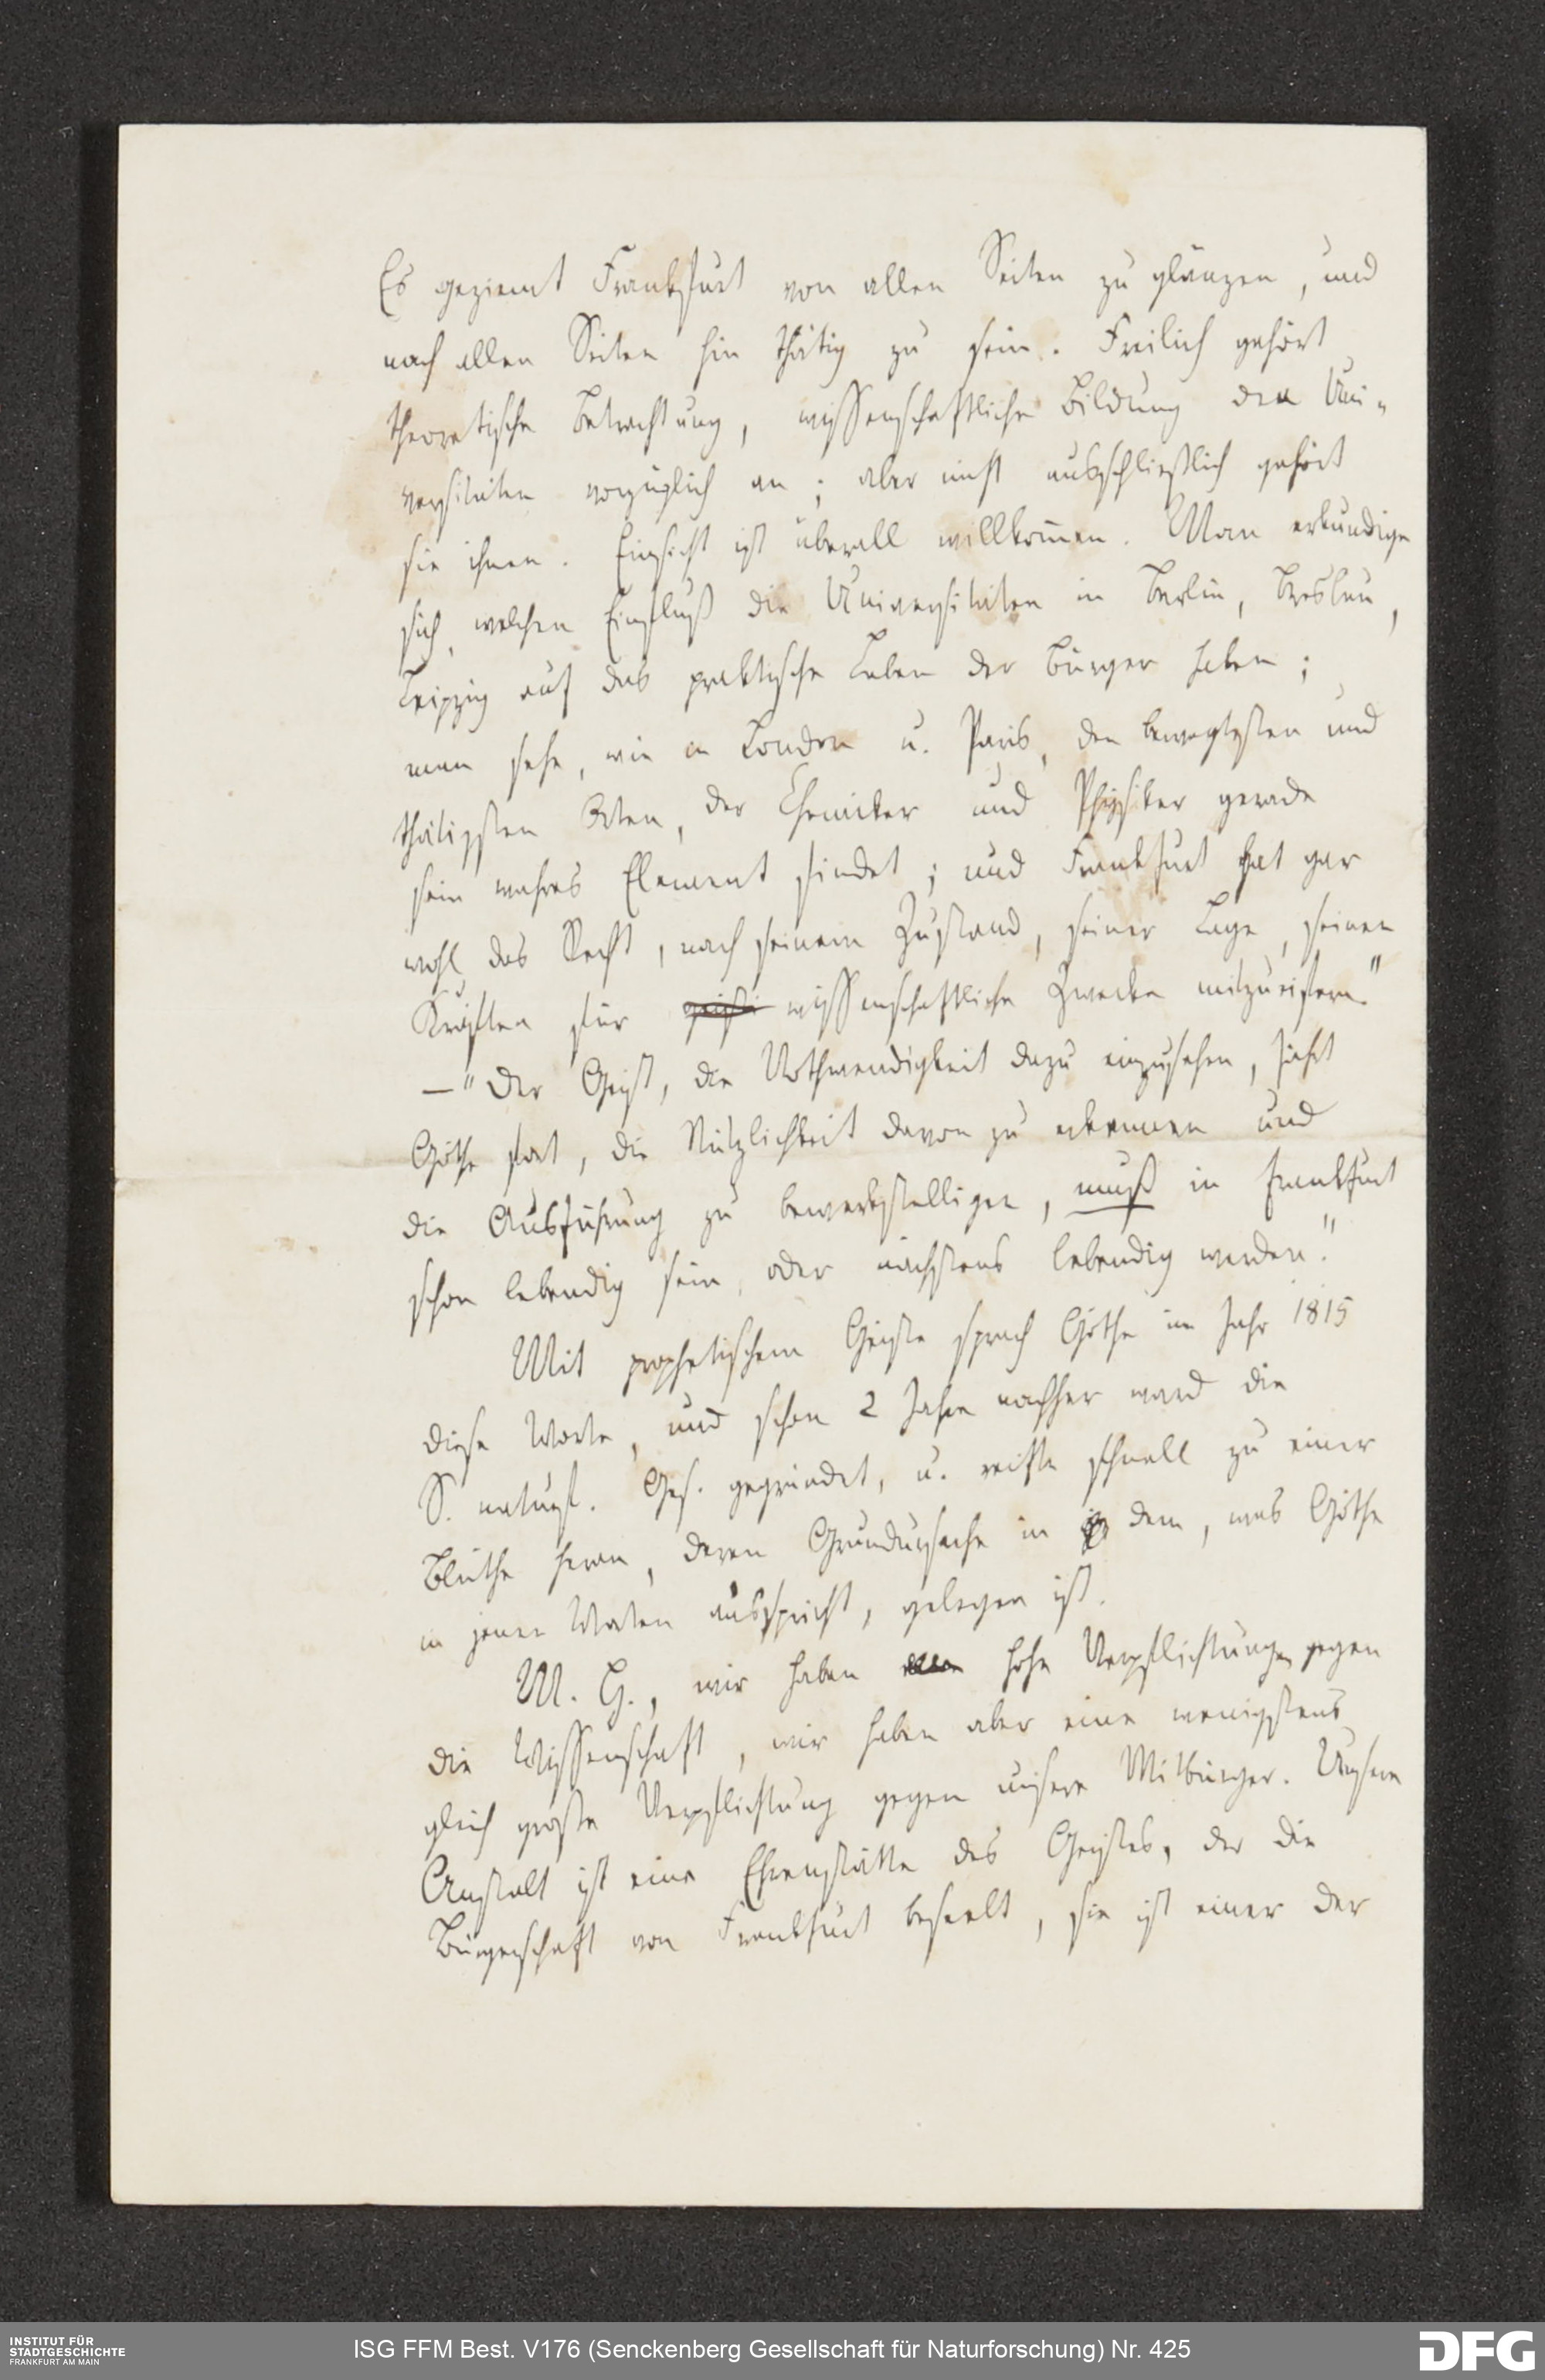 Es geziemt Frankfurt von allen Seiten zu glänzen, und
nach allen Seiten hin thätig zu sein. Freilich gehört
theoretische Betrachtung, wissenschaftliche Bildung den Uni-
versitäten vorzüglich an; aber nicht ausschließlich gehört
sie ihnen. Einsicht ist überall willkom̅en. Man erkundige
sich, welchen Einfluß die Universitäten in Berlin, Breslau,
Leipzig auf das praktische Leben der Bürger haben;
man sehe, wie in London u. Paris, den bewegtesten und
thätigsten Orten, der Chemiker und Physiker gerade
sein wahres Element findet; und Frankfurt hat gar
wohl das Recht, nach seinem Zustand, seiner Lage, seinen
Kräften für wissenschaftliche Zwecke mitzueifern."
— "Der Geist, die Nothwendigkeit dazu einzusehen, fährt
Göthe fort, die Nützlichkeit davon zu erkennen und
die Ausführung zu bewerkstelligen, muß in Frankfurt
schon lebendig sein, oder nächstens lebendig werden."
Mit prophetischem Geiste sprach Göthe im Jahr 1815
diese Worte, und schon 2 Jahre nachher ward die
S. naturf. Ges. gegründet, u. reifte schnell zu einer
Blüthe heran, deren Grundursache in dem, was Göthe
in jenen Worten ausspricht, gelegen ist.
M. H., wir haben hohe Verpflichtungen gegen
die Wissenschaft, wir haben aber eine wenigstens
gleich große Verpflichtung gegen unsere Mitbürger. Unsere
Anstalt ist eine Ehrenstätte des Geistes, der die
Bürgerschaft von Frankfurt beseelt, sie ist einer der
INSTITUT FÜR
STADTGESCHICHTE
FRANKFURT AM MAIN
ISG FFM Best. V176 (Senckenberg Gesellschaft für Naturforschung) Nr. 425
DFG